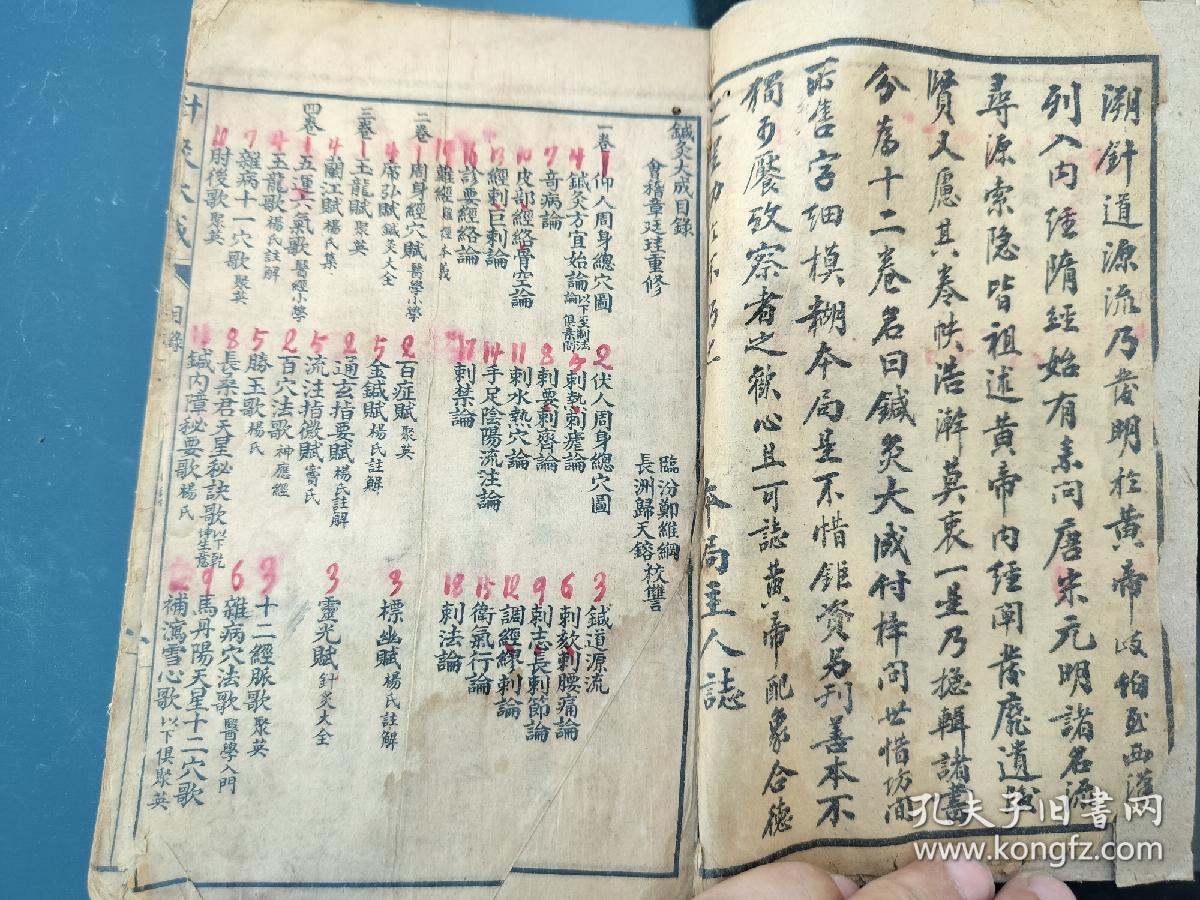 溯針道源流乃發明於黃帝岐伯至西漢
列入內經隋經始有素問唐宋元明諸名
尋源索隐皆祖述黃帝內经闡發靡遺
賢又慮其卷帙浩澣莫衷一是乃摠輯諸書
分為十二卷名曰鍼灸大成付梓问世惜坊间
所售字细模糊本局是不惜鉅資另刊善本不
獨可饜攷察者之歡心且可誌黃帝配象合德
本局主人誌
鍼灸大成目錄
會稽章廷珪重修
臨汾鄭維綱
長洲歸天鎔校讐
一卷
1 仰人周身總穴圖 2 伏人周身總穴圖 3 鍼道源流
4 鍼灸方宜始論 以下至制法論俱素問 5 刺熱刺瘧論 6 刺欬刺腰痛論
7 奇病論 8 刺要刺齊論 9 刺志長刺節論
10 皮部經絡骨空論 11 刺水熱穴論 12 調經繆刺論
13 經刺巨刺論 14 手足陰陽流注論 15 衛氣行論
16 診要經絡論 17 刺禁論 18 刺法論
19 難經
二卷
1 周身經穴賦 醫學小學 2 百症賦 聚英 3 標幽賦 楊氏註解
4 席弘賦 鍼灸大全 5 金鍼賦 楊氏註解
三卷
1 玉龍賦 聚英 2 通玄指要賦 楊氏註解 3 靈光賦 針灸大全
4 蘭江賦 楊氏集 5 流注指微賦 竇氏
四卷
1 五運六氣歌 醫經小學 2 百穴法歌 神應經 3 十二經脈歌 聚英
4 玉龍歌 楊氏註解 5 勝玉歌 楊氏 6 雜病穴法歌 醫學入門
7 雜病十一穴歌 聚英 8 長桑君天星秘訣歌 以下乾坤生意 9 馬丹陽天星十二穴歌
10 肘後歌 聚英 鍼內障秘要歌 楊氏 補瀉雪心歌 以下俱聚英
目錄
孔夫子旧书网
www.kongfz.com